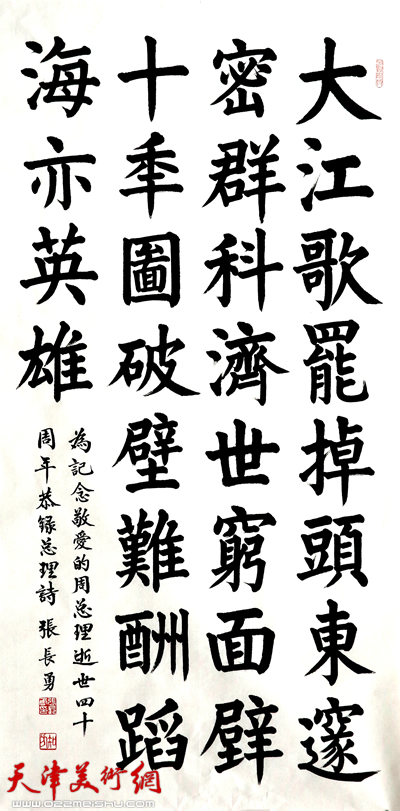 大江歌罷掉頭東邃
密群科濟世窮面壁
十年圖破壁難酬蹈
海亦英雄
為記念敬愛的周总理逝世四十
周年恭録总理詩 張長勇
天津美術網
www.022meishu.com